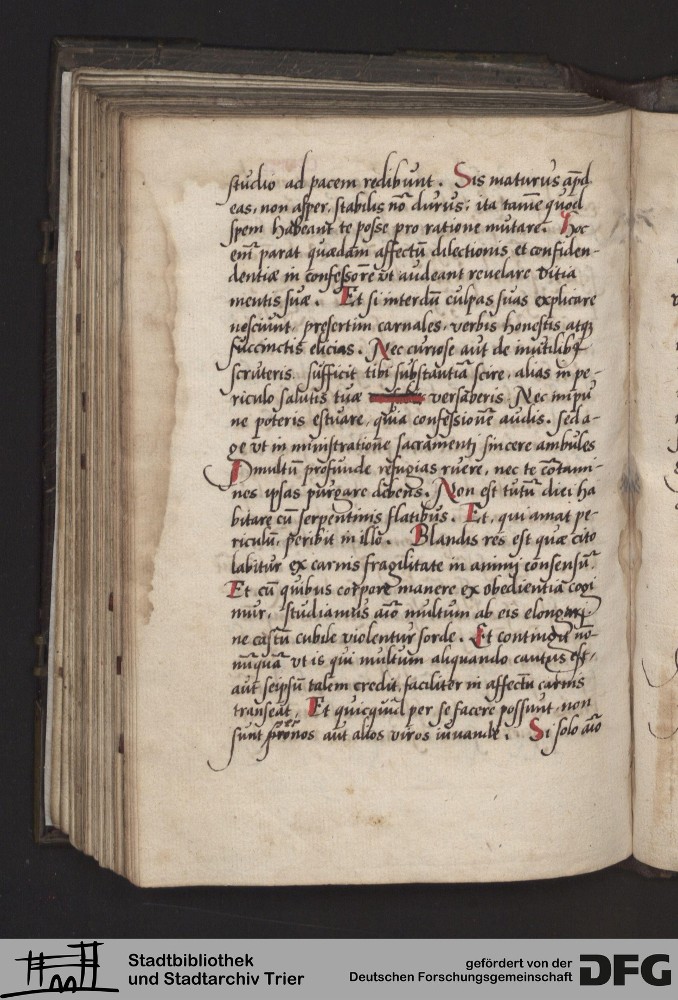 studio ad pacem redibunt. Sis maturus apd
eas, non asper, stabilis nō durus: ita tamē quod
spem habeant te posse pro ratione mutare. Hoc
em̄ parat quædam affectū dilectionis et confiden-
dentiæ in confessorē vt audeant reuelare vitia
mentis suæ. Et si interdū culpas suas explicare
nesciunt, presertim carnales, verbis honestis atqꝫ
succinctis elicias. Nec curiose aut de inutilibꝰ
scruteris sufficit tibi substantiā scire, alias in pe-
riculo salutis tuæ versaberis. Nec impu
ne poteris estuare, quia confessionē audis. sed a-
ge vt in ministratione sacramentj sincere ambules
multū profunde refugias ruere, nec te cōtami-
nes ipsas purgare debens. Non est tutū diei ha
bitare cū serpentinis flatibus. Et, qui amat pe-
riculū, peribit in illo. Blandis res est quæ cito
labitur ex carnis fragilitate in animj consensū.
Et cū quibus corpore manere ex obedientia cogi
mur, studiamus aīo multum ab eis elongarj
ne castū cubile violentur sorde. Et contingit nō-
nūquā vt is qui multum aliquando cautus est,
aut seipsū talem credit, faciliter in affectū carnis
transeat. Et quicquid per se facere possunt, non
sunt aut alios viros iuuande. Si solo aīo
Stadtbibliothek
und Stadtarchiv Trier
gefördert von der
Deutschen Forschungsgemeinschaft
DFG